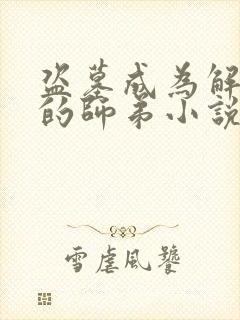 盗墓成為解
的師弟小説
雪虐風饕